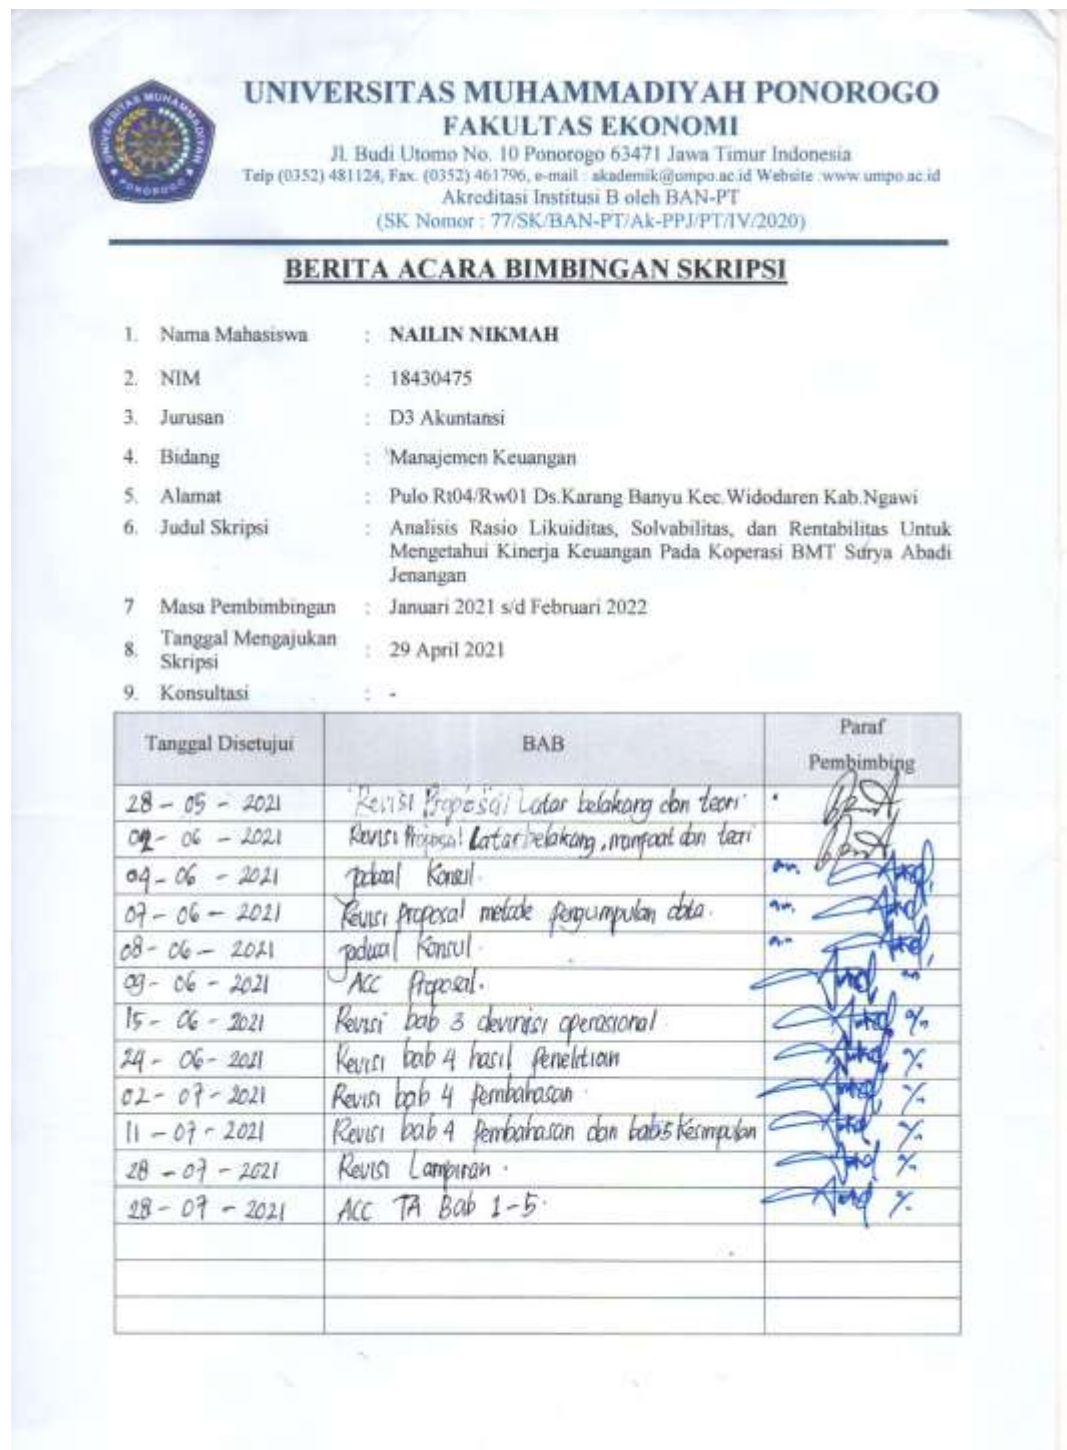 UNIVERSITAS MUHAMMADIYAH PONOROGO
FAKULTAS EKONOMI
Jl. Budi Utomo No. 10 Ponorogo 63471 Jawa Timur Indonesia
Telp (0352) 481124, Fax. (0352) 461796, e-mail : akademik@umpo.ac.id Website :www.umpo.ac.id
Akreditasi Institusi B oleh BAN-PT
(SK Nomor : 77/SK/BAN-PT/Ak-PPJ/PT/IV/2020)
BERITA ACARA BIMBINGAN SKRIPSI
1. Nama Mahasiswa : NAILIN NIKMAH
2. NIM : 18430475
3. Jurusan : D3 Akuntansi
4. Bidang : Manajemen Keuangan
5. Alamat : Pulo Rt04/Rw01 Ds.Karang Banyu Kec.Widodaren Kab.Ngawi
6. Judul Skripsi : Analisis Rasio Likuiditas, Solvabilitas, dan Rentabilitas Untuk
Mengetahui Kinerja Keuangan Pada Koperasi BMT Surya Abadi
Jenangan
7 Masa Pembimbingan : Januari 2021 s/d Februari 2022
8. Tanggal Mengajukan Skripsi : 29 April 2021
9. Konsultasi : -
Tanggal Disetujui BAB Paraf Pembimbing
28 - 05 - 2021 Revisi Proposal Latar belakang dan teori
02 - 06 - 2021 Revisi Proposal Latar belakang, manfaat dan teori
04 - 06 - 2021 jadwal Konsul.
07 - 06 - 2021 Revisi proposal metode pengumpulan data.
08 - 06 - 2021 jadwal Konsul.
09 - 06 - 2021 ACC Proposal.
15 - 06 - 2021 Revisi bab 3 devinisi operasional
24 - 06 - 2021 Revisi bab 4 hasil penelitian
02 - 07 - 2021 Revisi bab 4 pembahasan.
11 - 07 - 2021 Revisi bab 4 pembahasan dan bab 5 Kesimpulan
28 - 07 - 2021 Revisi Lampiran.
28 - 07 - 2021 ACC TA Bab 1-5.